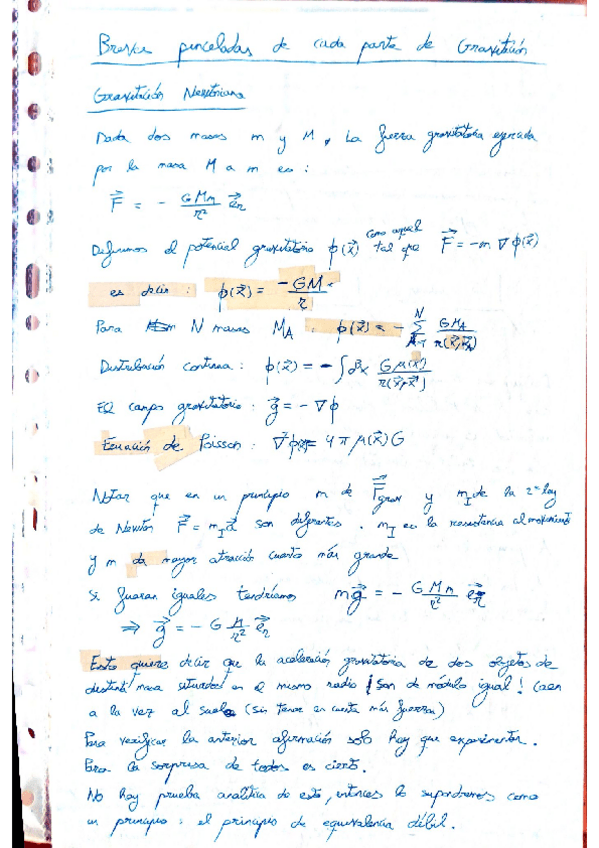 Breves pinceladas de cada parte de Gravitación
Gravitación Newtoniana
Dada dos masas m y M, La fuerza gravitatoria ejercida
por la masa M a m es:
F⃗ = - GMm/r² e⃗r
Definimos el potencial gravitatorio ϕ(x⃗) como aquel tal que F⃗ = -m ∇ϕ(x⃗)
es decir: ϕ(x⃗) = -GM/r
Para N masas M_A: ϕ(x⃗) = - Σ_{A=1}^{N} GM_A/r(x⃗,x⃗_A)
Distribución continua: ϕ(x⃗) = - ∫d³x Gμ(x⃗')/r(x⃗,x⃗')
El campo gravitatorio: g⃗ = -∇ϕ
Ecuación de Poisson: ∇²ϕ(x⃗) = 4πμ(x⃗)G
Notar que en un principio m de F⃗grav y m_I de la 2ª ley
de Newton F⃗ = m_I a⃗ son diferentes. m_I es la resistencia al movimiento
y m da mayor atracción cuanto más grande
Si fueran iguales tendríamos mg⃗ = - GMm/r² e⃗r
⇒ g⃗ = - G M/r² e⃗r
Esto quiere decir que la aceleración gravitatoria de dos objetos de
distinta masa situados en el mismo radio ¡son de módulo igual! Caen
a la vez al suelo (sin tener en cuenta más fuerzas)
Para verificar la anterior afirmación solo hay que experimentar.
Para la sorpresa de todos es cierto.
No hay prueba analítica de esto, entonces lo supondremos como
un principio: el principio de equivalencia débil.